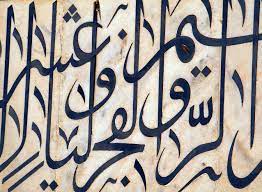 الرحيم والفجر وليال عشر